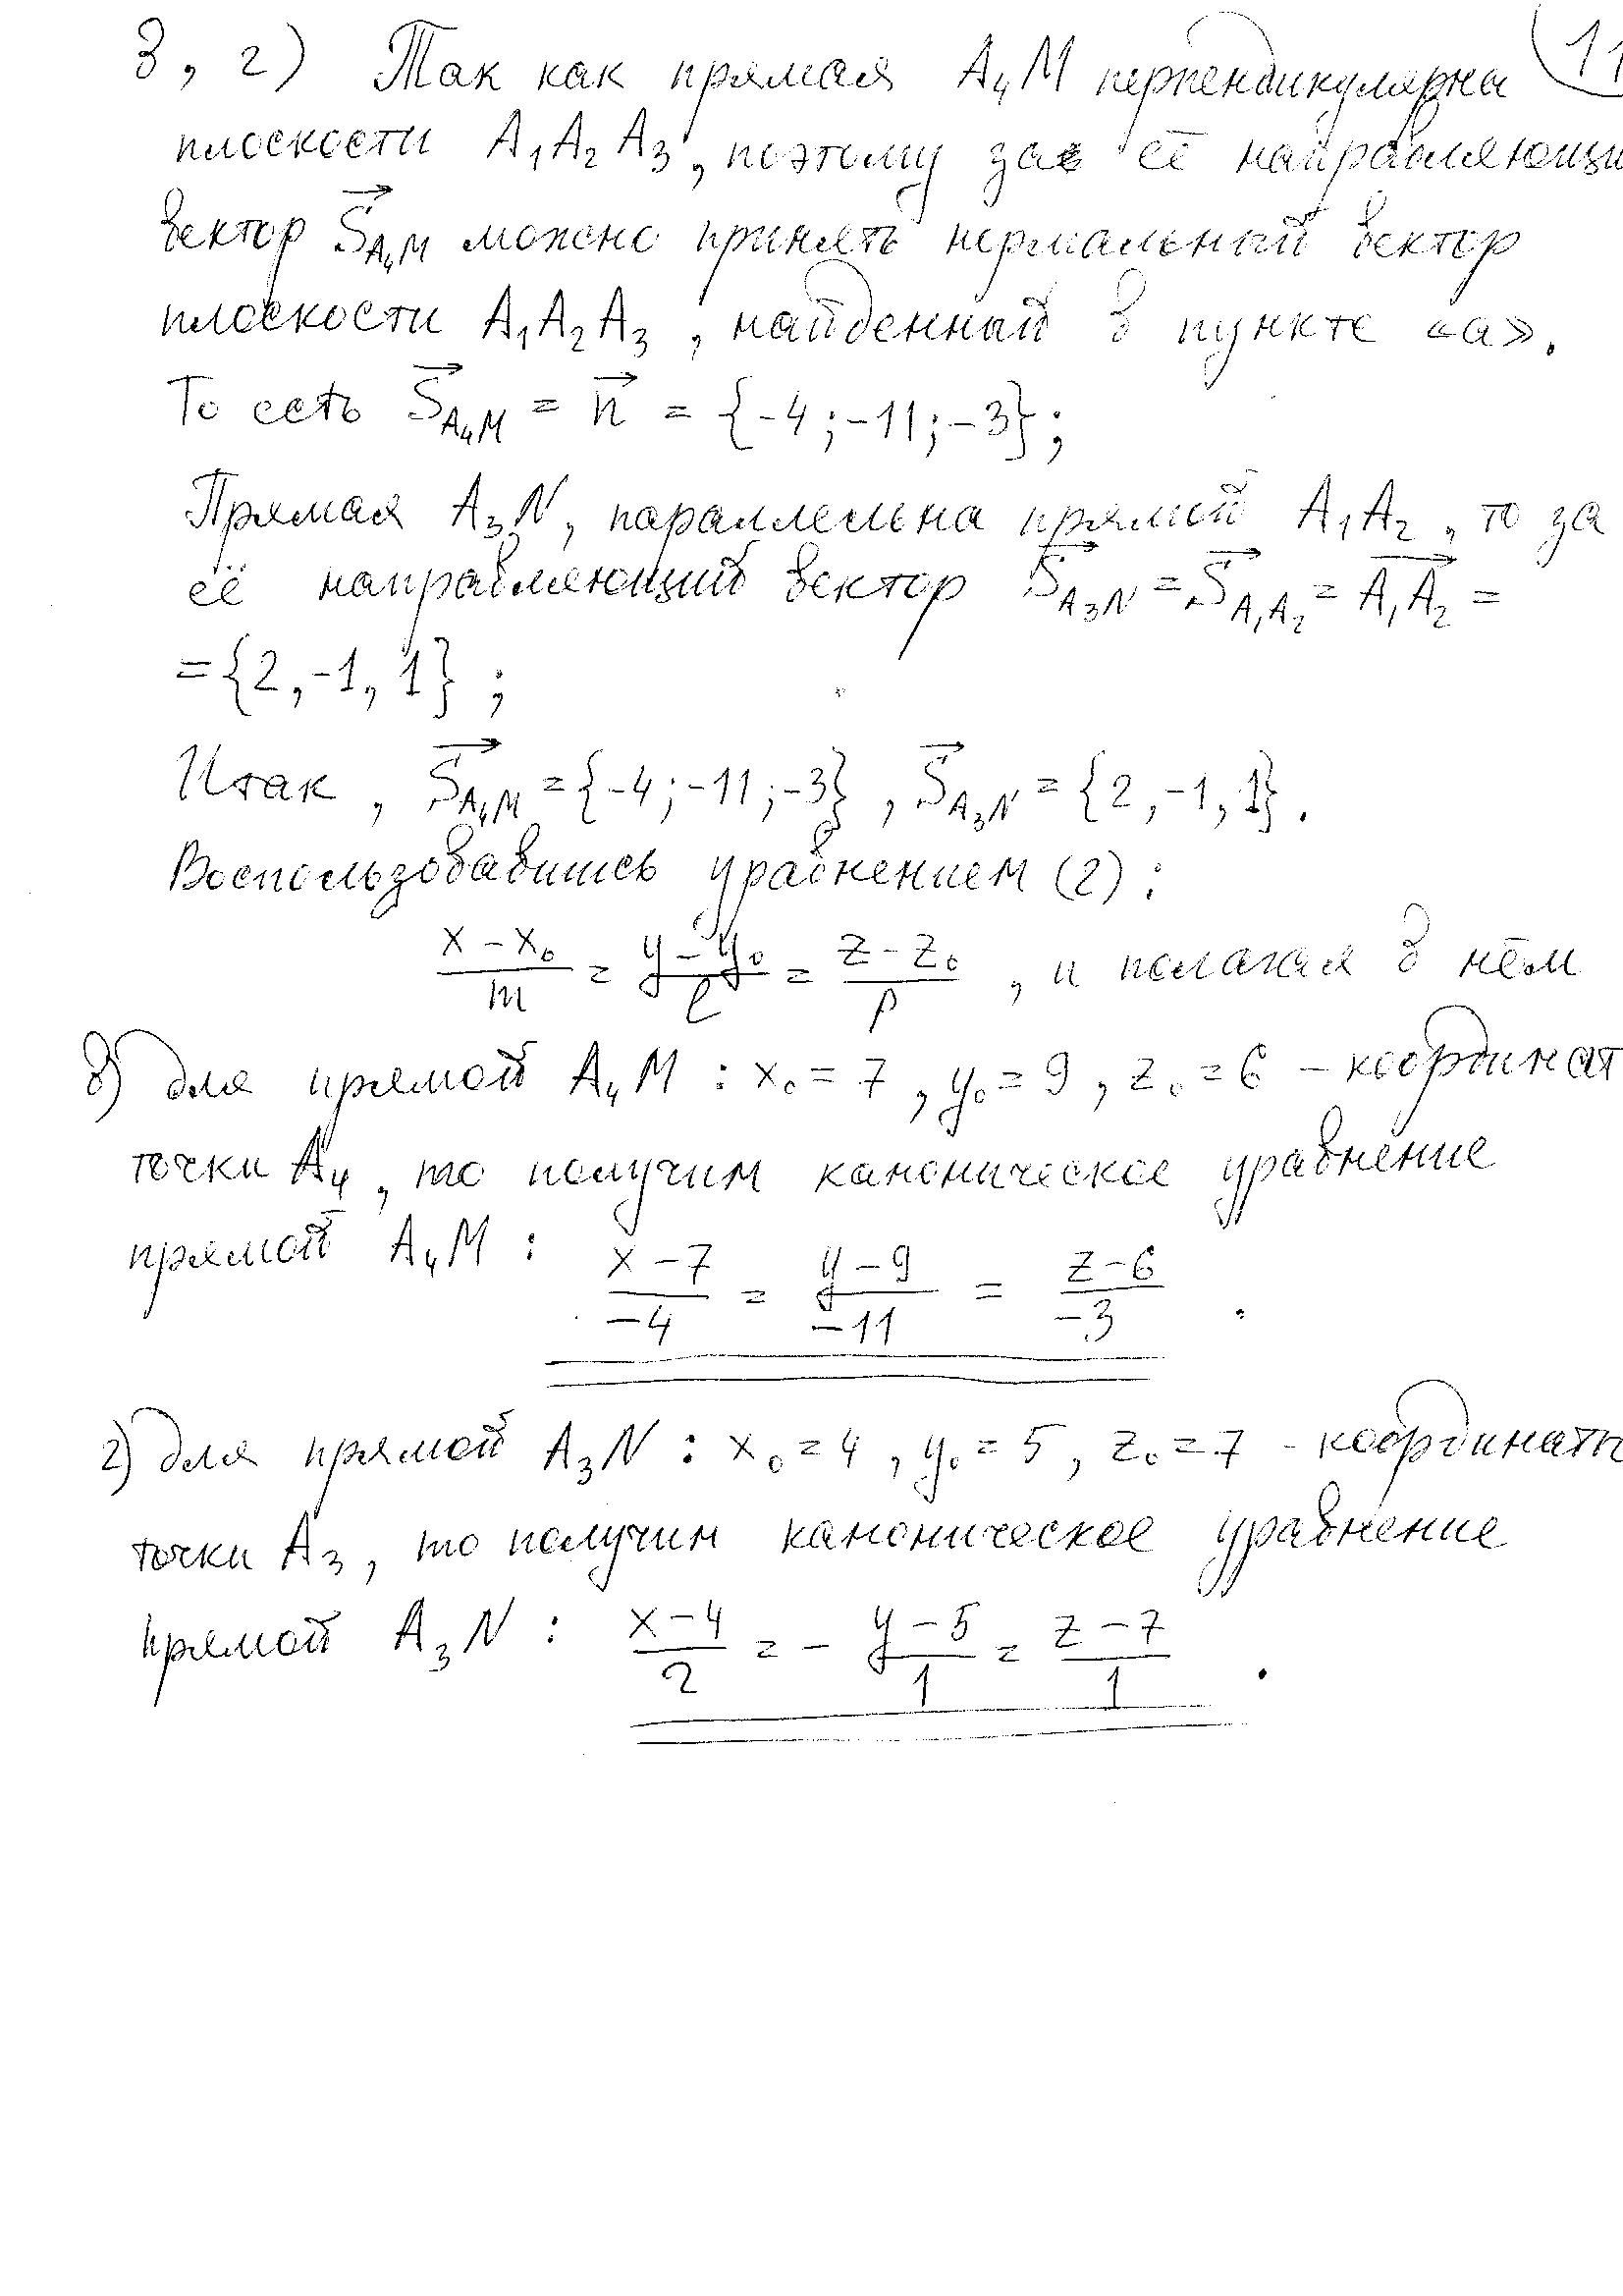 в, г) Так как прямая A₄M перпендикулярна
11
плоскости A₁A₂A₃, поэтому за её направляющи
вектор S⃗_A₄M можно принять нормальный вектор
плоскости A₁A₂A₃, найденный в пункте «а».
То есть S⃗_A₄M = n⃗ = {-4;-11;-3};
Прямая A₃N, параллельна прямой A₁A₂, то за
её направляющий вектор S⃗_A₃N = S⃗_A₁A₂ = A₁A₂⃗ =
= {2,-1,1};
Итак, S⃗_A₄M = {-4;-11;-3}, S⃗_A₃N = {2,-1,1}.
Воспользовавшись уравнением (2):
(x-x₀)/m = (y-y₀)/l = (z-z₀)/p, и полагая в нём
в) для прямой A₄M: x₀=7, y₀=9, z₀=6 – координат
точки A₄, то получим каноническое уравнение
прямой A₄M: (x-7)/-4 = (y-9)/-11 = (z-6)/-3.
г) для прямой A₃N: x₀=4, y₀=5, z₀=7 - координаты
точки A₃, то получим каноническое уравнение
прямой A₃N: (x-4)/2 = - (y-5)/1 = (z-7)/1.